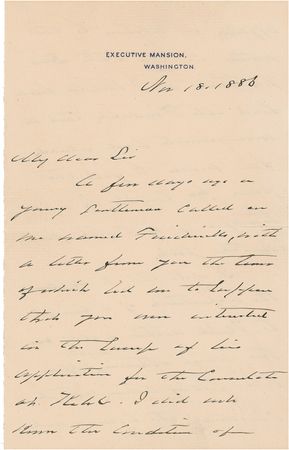 EXECUTIVE MANSION,
WASHINGTON.
Nov 18. 1886
My dear Sir
A few days ago a
young Gentleman Called on
me named Friedrichs, with
a letter from you the tenor
of which led me to suppose
that you were interested
in the success of his
application for the Consulate
at Kehl. I did not
know the condition of